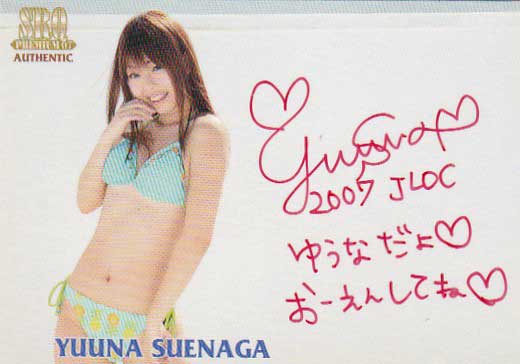 SRQ
PREMIUM 07
AUTHENTIC
Yuuna
2007 JLOC
ゆうなだよ♡
おーえんしてね♡
YUUNA SUENAGA